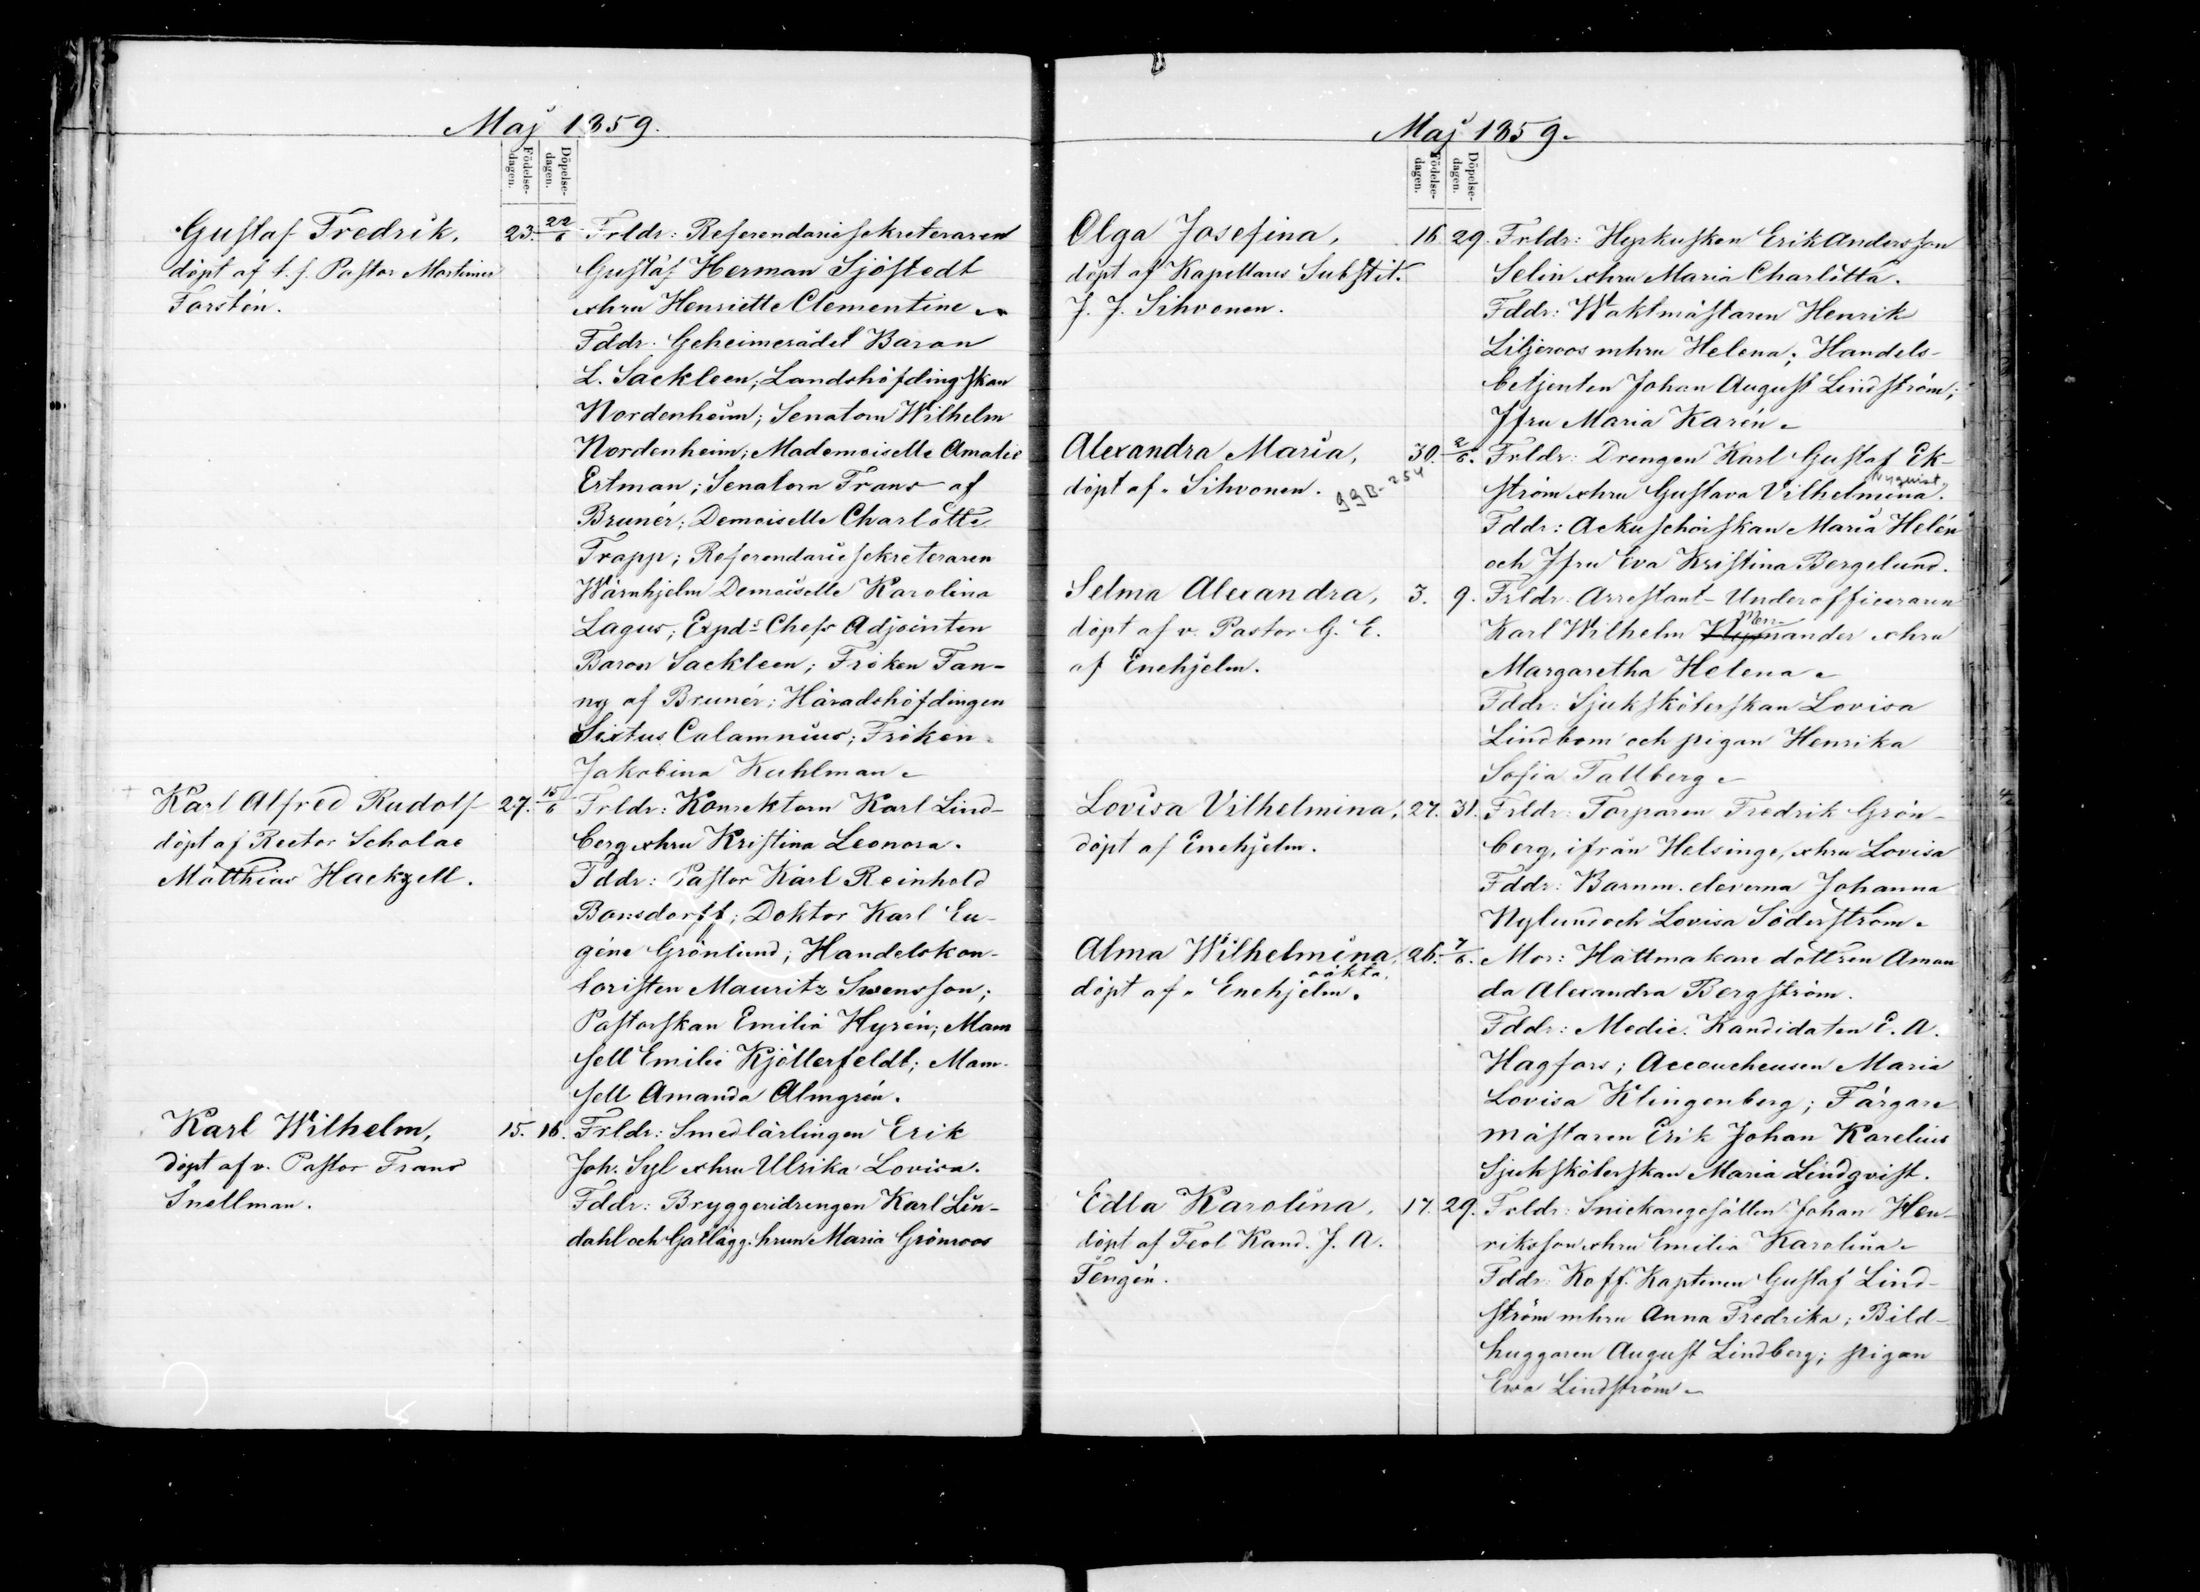 Maj 1859.
Födelse-dagen.
Döpelse-dagen.
Gustaf Fredrik,
döpt af t. f. Pastor Mortimer
Forstén.
23. 22/6
Frldr: Referendariesekreteraren
Gustaf Herman Sjöstedt
o hru Henriette Clementine
Fddr. Geheimerådet Baron
L. Sackleen; Landshöfdingskan
Nordenheim; Senatorn Wilhelm
Nordenheim; Mademoiselle Amalie
Ertman; Senatorn Frans af
Brunér; Demoiselle Charlotte
Trapp; Referendariesekreteraren
Wärnhjelm Demoiselle Karolina
Lagus; Expds Chefs Adjointen
Baron Sackleen; Fröken Fan-
ny af Brunér; Häradshöfdingen
Sixtus Calamnius; Fröken
Jakobina Kuhlman
Karl Alfred Rudolf
döpt af Rector Scholae
Matthias Hackzell.
27. 15/6
Frldr: Konrektorn Karl Lind-
berg o hru Kristina Leonora.
Fddr: Pastor Karl Reinhold
Bonsdorff; Doktor Karl Eu-
géne Grönlund; Handelskon-
toristen Mauritz Swensson;
Pastorskan Emilia Hyrén; Mam
sell Emilie Kjöllerfeldt; Mam-
sell Amanda Almgrén.
Karl Wilhelm,
döpt af v. Pastor Frans
Snellman.
15. 16.
Frldr: Smedlärlingen Erik
Joh. Syl o hru Ulrika Lovisa.
Fddr: Bryggeridrengen Karl Lin-
dahl och Gatlägg. hrun Maria Grönroos
Maj 1859.
Födelse-dagen.
Döpelse-dagen.
Olga Josefina,
döpt af Kapellans Substit.
J. J. Sihvonen.
16 29.
Frldr: Hyrkusken Erik Andersson
Selin o hru Maria Charlotta.
Fddr: Waktmästaren Henrik
Liljeroos m hru Helena; Handels-
betjenten Johan August Lindström;
Jfru Maria Karén
Alexandra Maria,
döpt af " Sihvonen.
99 B-254
30. 2/6.
Frldr: Drengen Karl Gustaf Ek-
ström o hru Gustava Vilhelmina. Nyquist
Fddr: Ackuschörskan Maria Helén
och Jfru Eva Kristina Bergelund.
Selma Alexandra,
döpt af v. Pastor G. E.
af Enehjelm.
3. 9.
Frldr: Arrestant-Underofficeraren
Men
Karl Wilhelm ander o hru
Margaretha Helena
Fddr: Sjuksköterskan Lovisa
Lindbom och pigan Henrika
Sofia Tallberg
Lovisa Vilhelmina,
döpt af Enehjelm.
27. 31.
Frldr: Torparen Fredrik Grön-
berg, ifrån Helsinge, o hru Lovisa
Fddr: Barnm. eleverna Johanna
Nylund och Lovisa Söderström
Alma Wilhelmina,
oäkta,
döpt af " Enehjelm.
26. 7/6.
Mor: Hattmakare dottren Aman
da Alexandra Bergström.
Fddr: Medic. Kandidaten E. A.
Hagfors; Accoucheusen Maria
Lovisa Klingenberg; Färgare
mästaren Erik Johan Karelius
Sjuksköterskan Maria Lindqvist.
Edla Karolina,
döpt af Teol Kand. J. A.
Tengén.
17. 29.
Frldr: Snickaregesällen Johan Hen-
riksson o hru Emilia Karolina
Fddr: Koff. Kaptenen Gustaf Lind-
ström m hru Anna Fredrika; Bild-
huggaren August Lindberg; pigan
Ewa Lindström